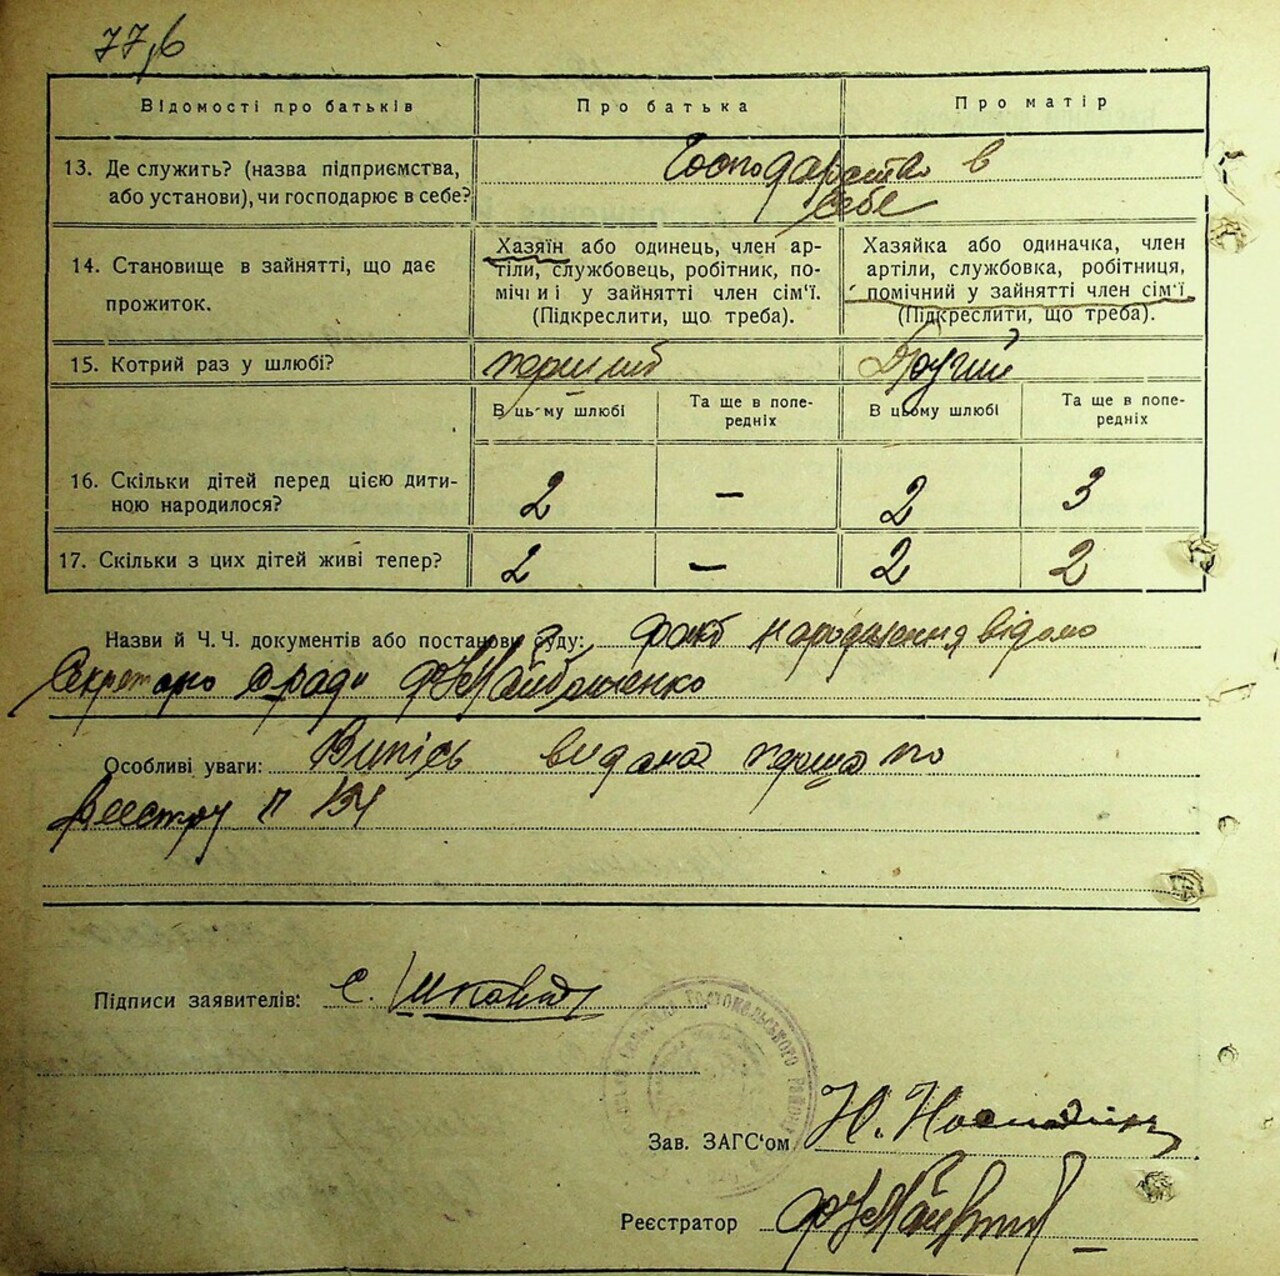 77,6
Відомості про батьків
Про батька
Про матір
13. Де служить? (назва підприємства,
або установи), чи господарює в себе?
Господарство в
себе
14. Становище в зайнятті, що дає
прожиток.
Хазяїн або одинець, член ар-
тіли, службовець, робітник, по-
мічн и і у зайнятті член сім'ї.
(Підкреслити, що треба).
Хазяйка або одиначка, член
артіли, службовка, робітниця,
помічний у зайнятті член сім'ї
(Підкреслити, що треба).
15. Котрий раз у шлюбі?
перший
Другий
В цьому шлюбі
Та ще в попе-
редніх
В цьому шлюбі
Та ще в попе-
редніх
16. Скільки дітей перед цією дити-
ною народилося?
2 – 2 3
17. Скільки з цих дітей живі тепер?
2 – 2 2
Назви й Ч. Ч. документів або постанови суду: факт народження відомо
Секретарю с ради
Особливі уваги: Випісь видана перша по
реестру № 134
Підписи заявителів: С.
Гостомельського району
Зав. ЗАГС'ом Н.
Реєстратор